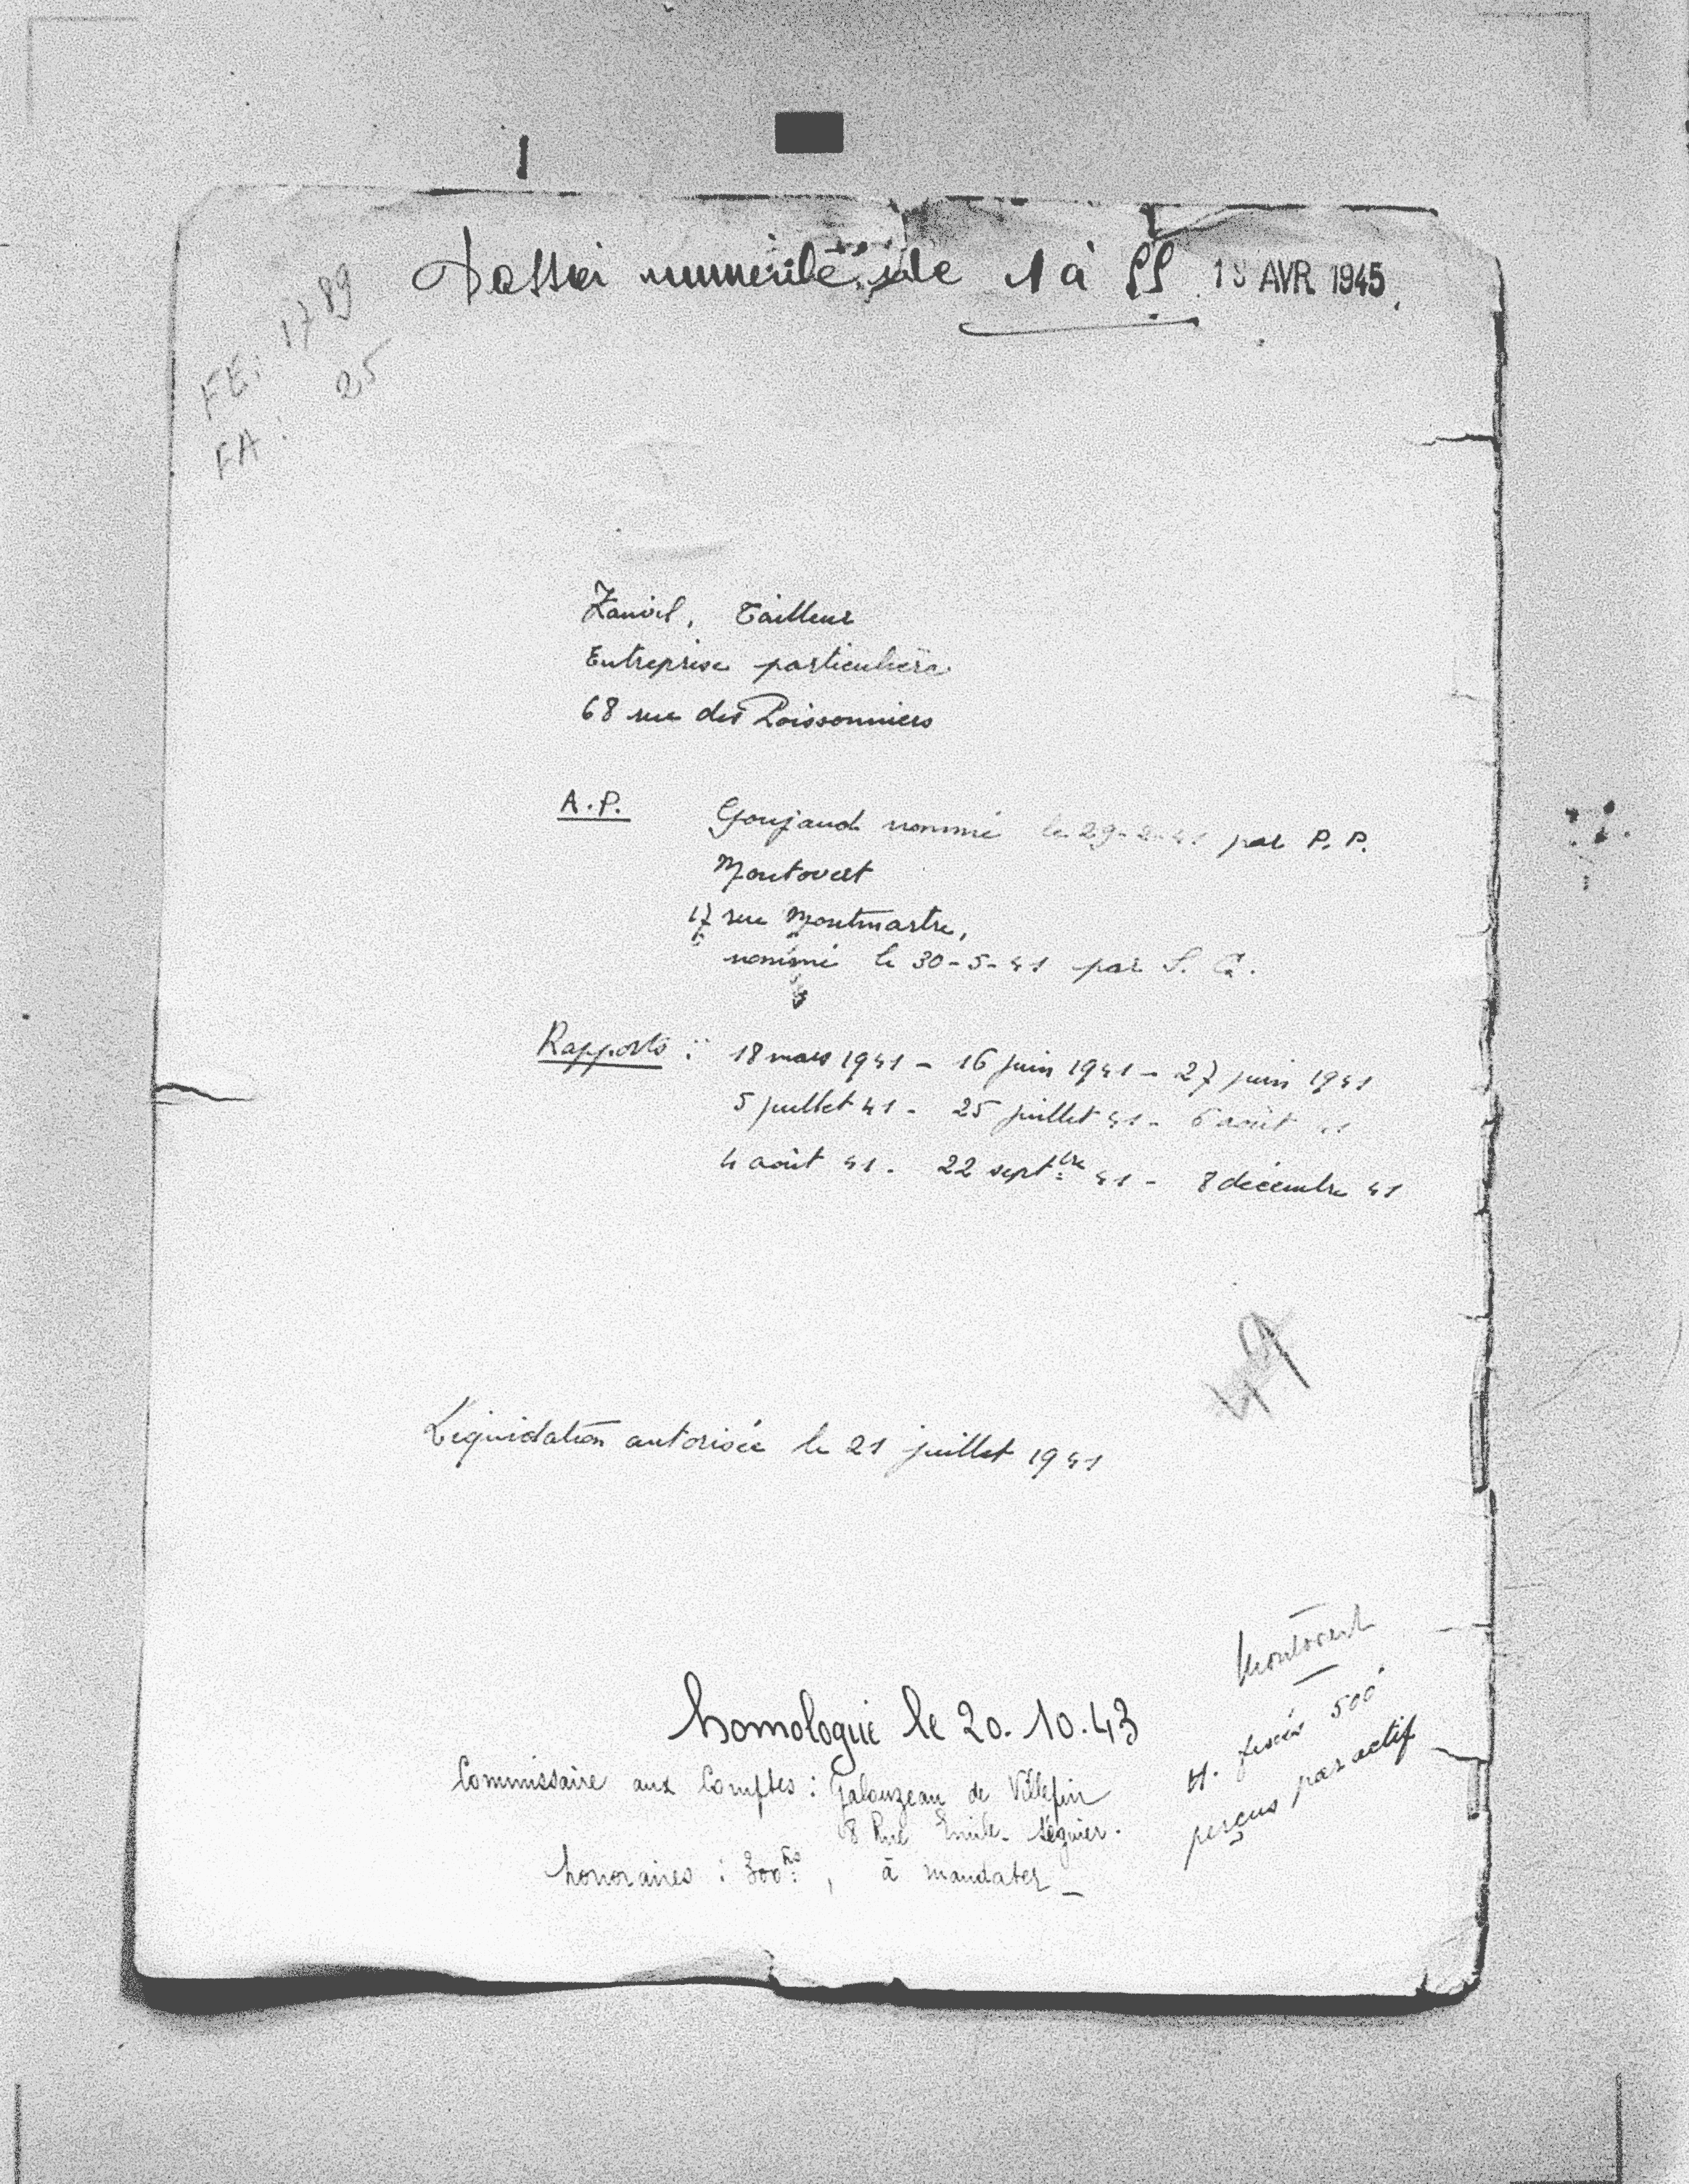 Dossier numéroté de 1 à 55 AVR 1945
FE: 1789
FA: 25
Zanvil, Tailleur
Entreprise particulière
68 rue des Poissonniers
A.P. Goujaud nommé le 29-2-41 par P.P.
Montovert
17 rue Montmartre,
nommé le 30-5-41 par S. C.
Rapports : 18 mars 1941 - 16 juin 1941 - 27 juin 1941
5 juillet 41 - 25 juillet 41 - 6 août 41
4 août 41 - 22 septbre 41 - 8 décembre 41
Liquidation autorisée le 21 juillet 1941
Montovert
H. fixés 500
perçus par actif
homologué le 20.10.43
Commissaire aux Comptes : Galouzeau de Villepin
8 Rue Emile-
honoraires : 300 frs, à mandater -